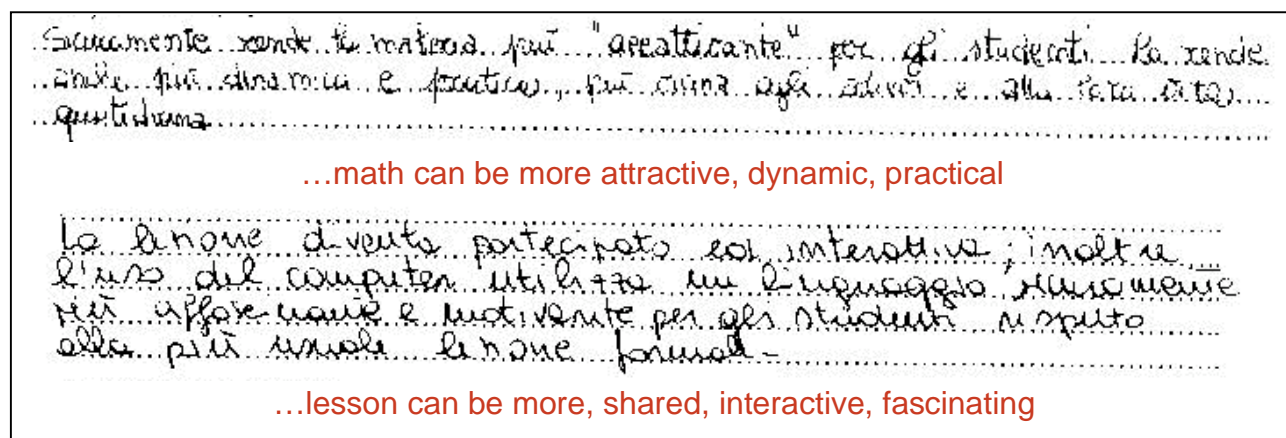 Sicuramente rende la materia più "appetticante" per gli studenti. La rende
anche più dinamica e pratica, più vicina agli allievi e alla loro vita
quotidiana
…math can be more attractive, dynamic, practical
La lezione diventa partecipata ed interattiva; inoltre
l'uso del computer utilizza un linguaggio sicuramente
più affascinante e motivante per gli studenti rispetto
alla più usuale lezione formale.
…lesson can be more, shared, interactive, fascinating